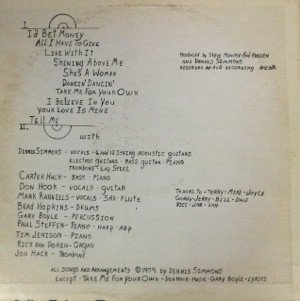 I.
I'd Bet Money
All I Have To Give
Live With It
Shining Above Me
She's A Woman
Dancin' Dancin'
Take Me For Your Own
I Believe In You
Your Love Is Mine
II. Tell Me
Produced by Steve
and Dennis Simmons
Recorded at Recording
with
Dennis Simmons - vocals - 6 and 12 string acoustic guitars
electric guitars - bass guitar - piano
trombone - lap steel
Carter Hack - bass - piano
Don Hook - vocals - guitar
Mark Rannells - vocals - sax - flute
Brad Hopkins - drums
Gary Boyle - percussion
Paul Steffen - piano - harp - arp
Tim Jenison - piano
Rick Van Doren - organ
Jon Hack - trombone
Thanks to - Terry - Mike - Joyce
Jerry - Bill - Dave
All songs and arrangements ©1979 by Dennis Simmons
Except - Take Me For Your Own - Don Hook - music - Gary Boyle - lyrics